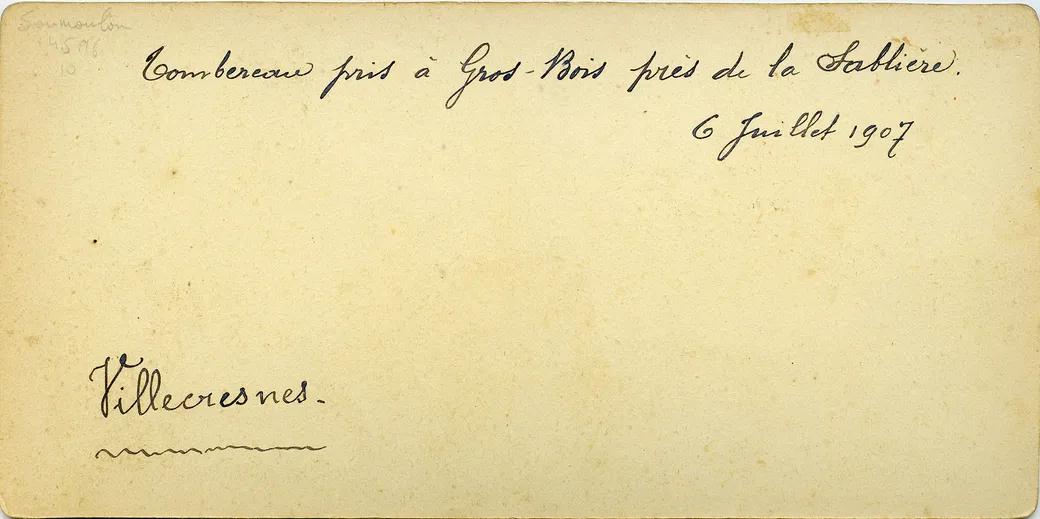 Tombereau pris à Gros-Bois près de la Sablière.
6 Juillet 1907
Villecresnes.